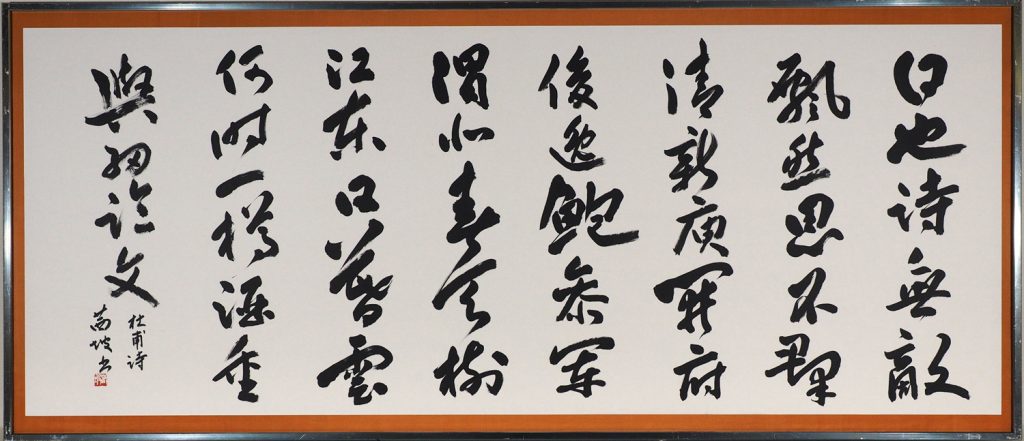 白也詩無敵
飄然思不羣
清新庾開府
俊逸鮑參軍
渭北春天樹
江東日暮雲
何時一樽酒重
與細論文
杜甫詩
坡書